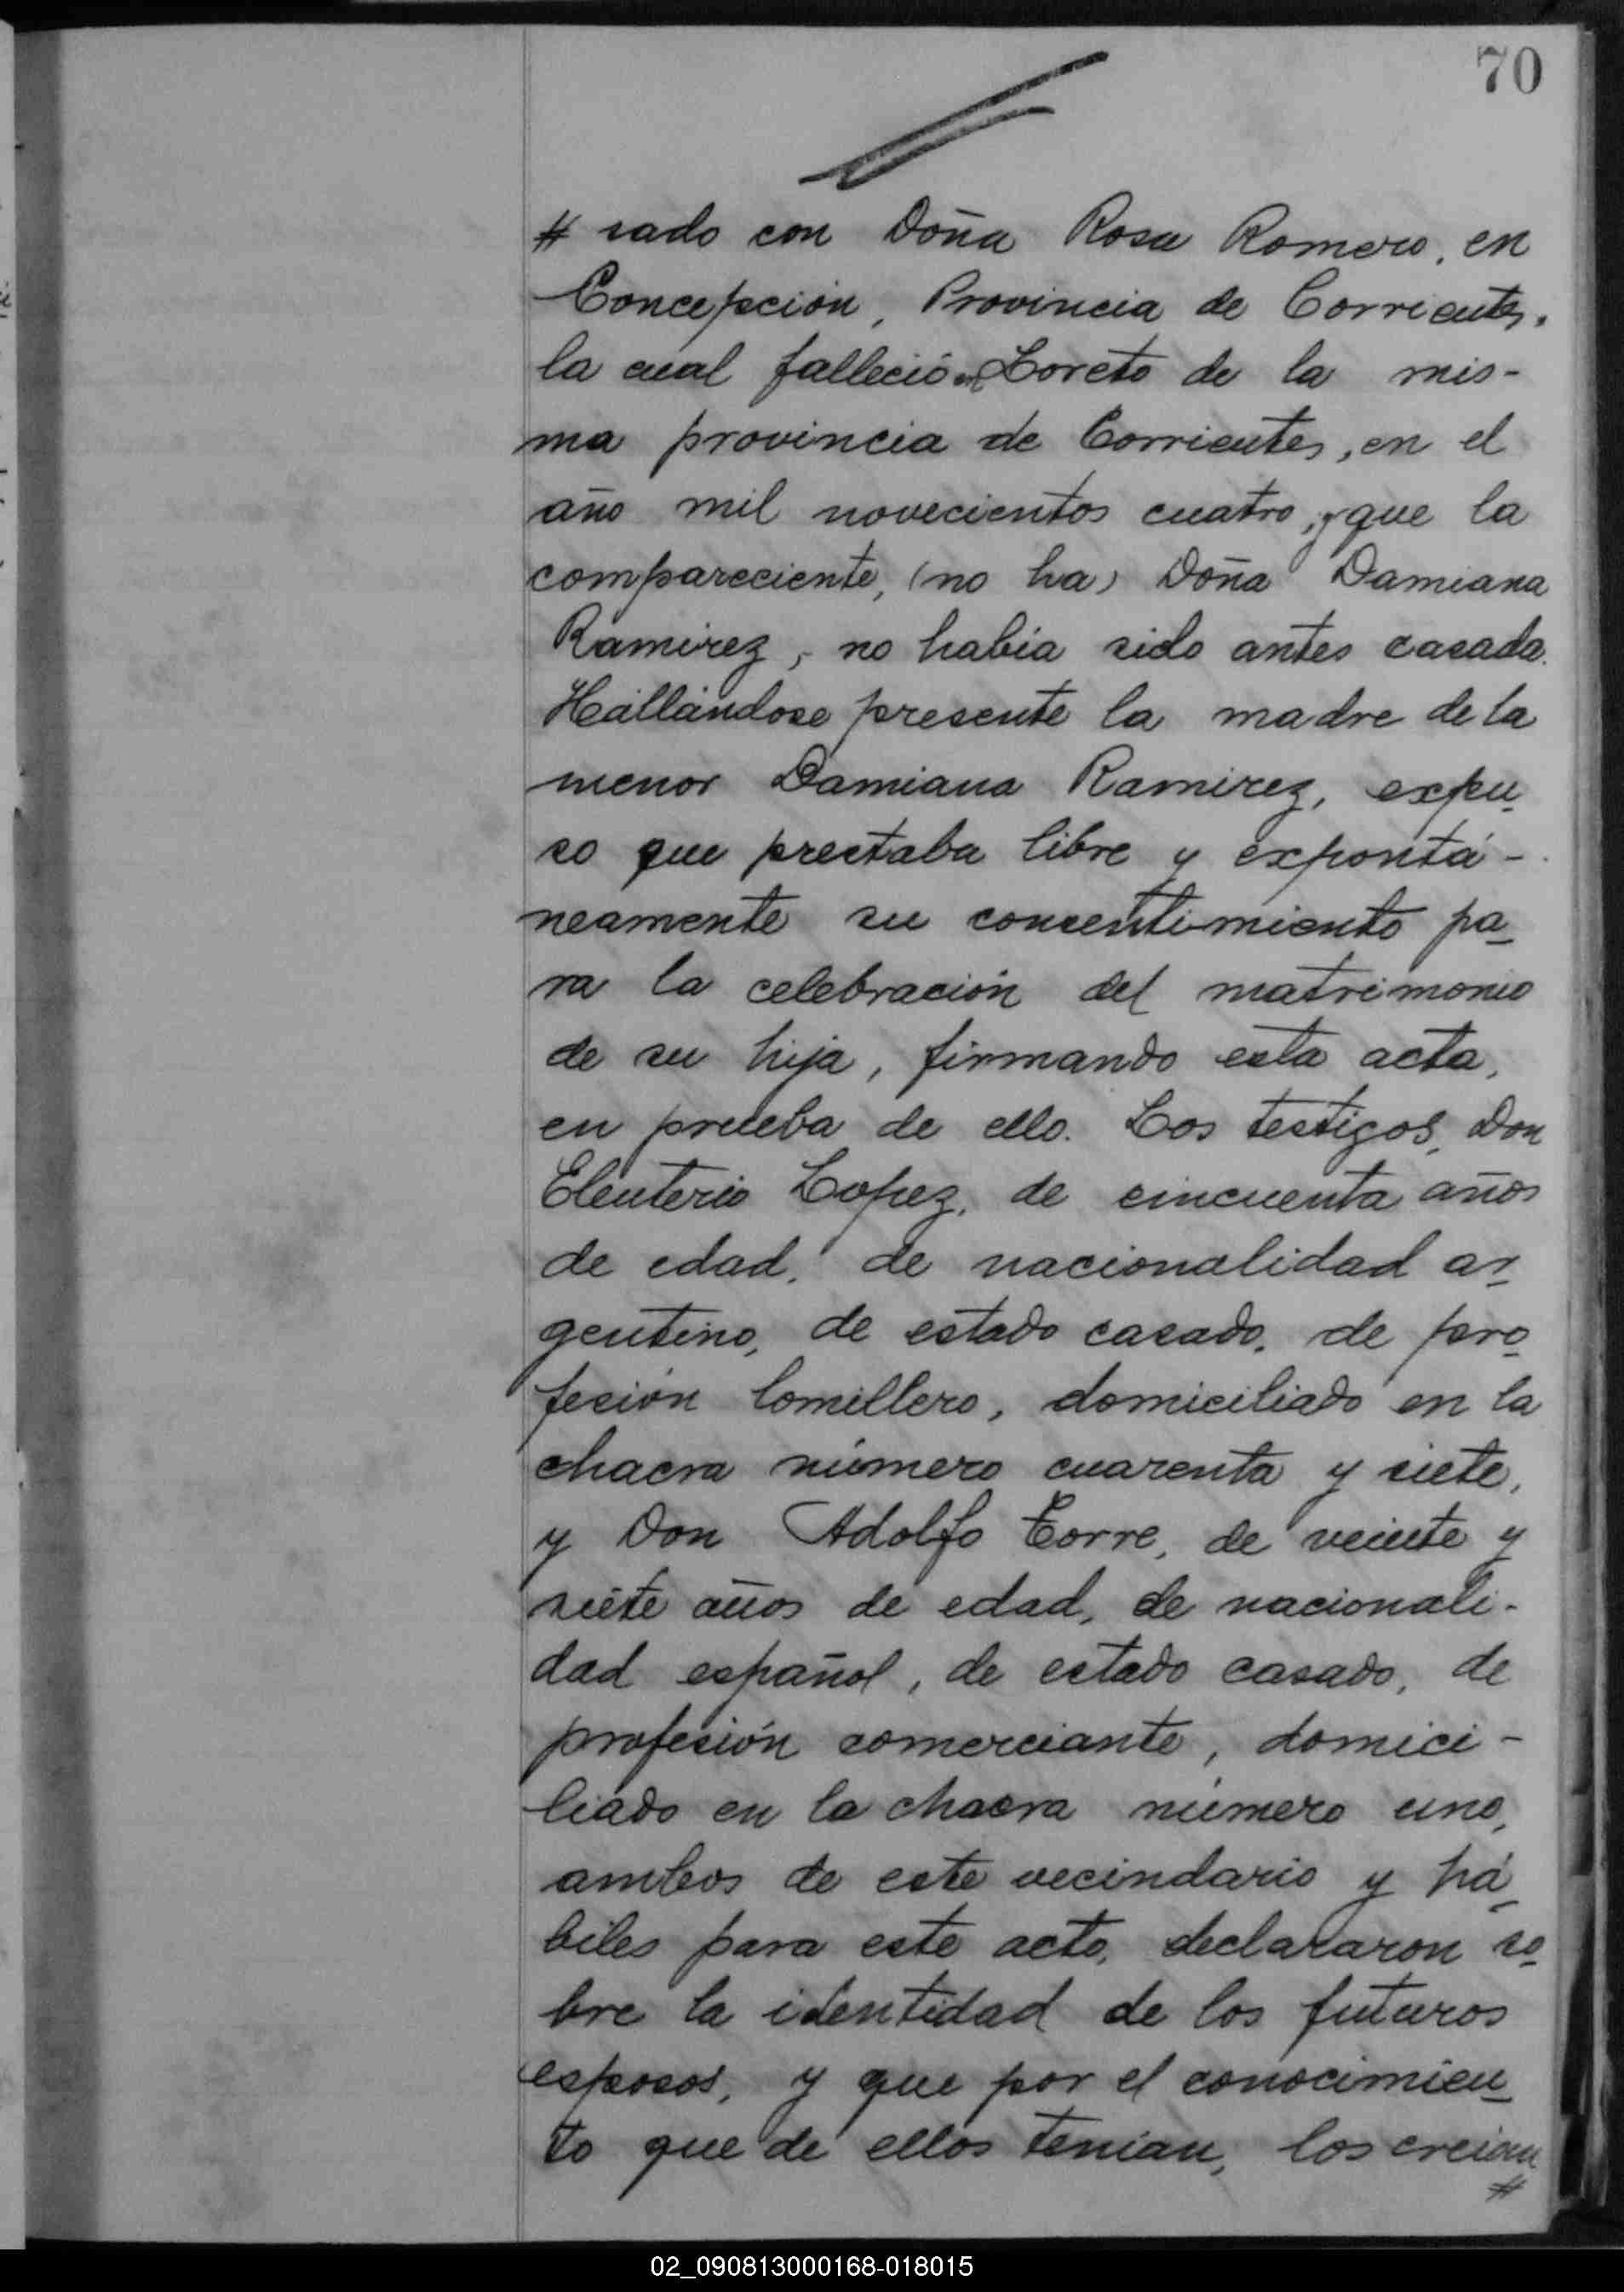 70
# sado con Doña Rosa Romero, en
Concepción, Provincia de Corrientes,
la cual falleció en Loreto de la mis-
ma provincia de Corrientes, en el
año mil novecientos cuatro, y que la
compareciente, (no ha) Doña Damiana
Ramirez, no habia sido antes casada.
Hallándose presente la madre de la
menor Damiana Ramirez, expu-
so que prestaba libre y expontá-
neamente su consentimiento pa-
ra la celebración del matrimonio
de su hija, firmando esta acta,
en prueba de ello. Los testigos, Don
Eleuterio Lopez, de cincuenta años
de edad, de nacionalidad ar-
gentino, de estado casado, de pro-
fesión lomillero, domiciliado en la
chacra número cuarenta y siete,
y Don Adolfo Torre, de veinte y
siete años de edad, de nacionali-
dad español, de estado casado, de
profesión comerciante, domici-
liado en la chacra número uno,
ambos de este vecindario y há-
biles para este acto, declararon so-
bre la identidad de los futuros
esposos, y que por el conocimien-
to que de ellos tenian, los creian
#
02_090813000168-018015